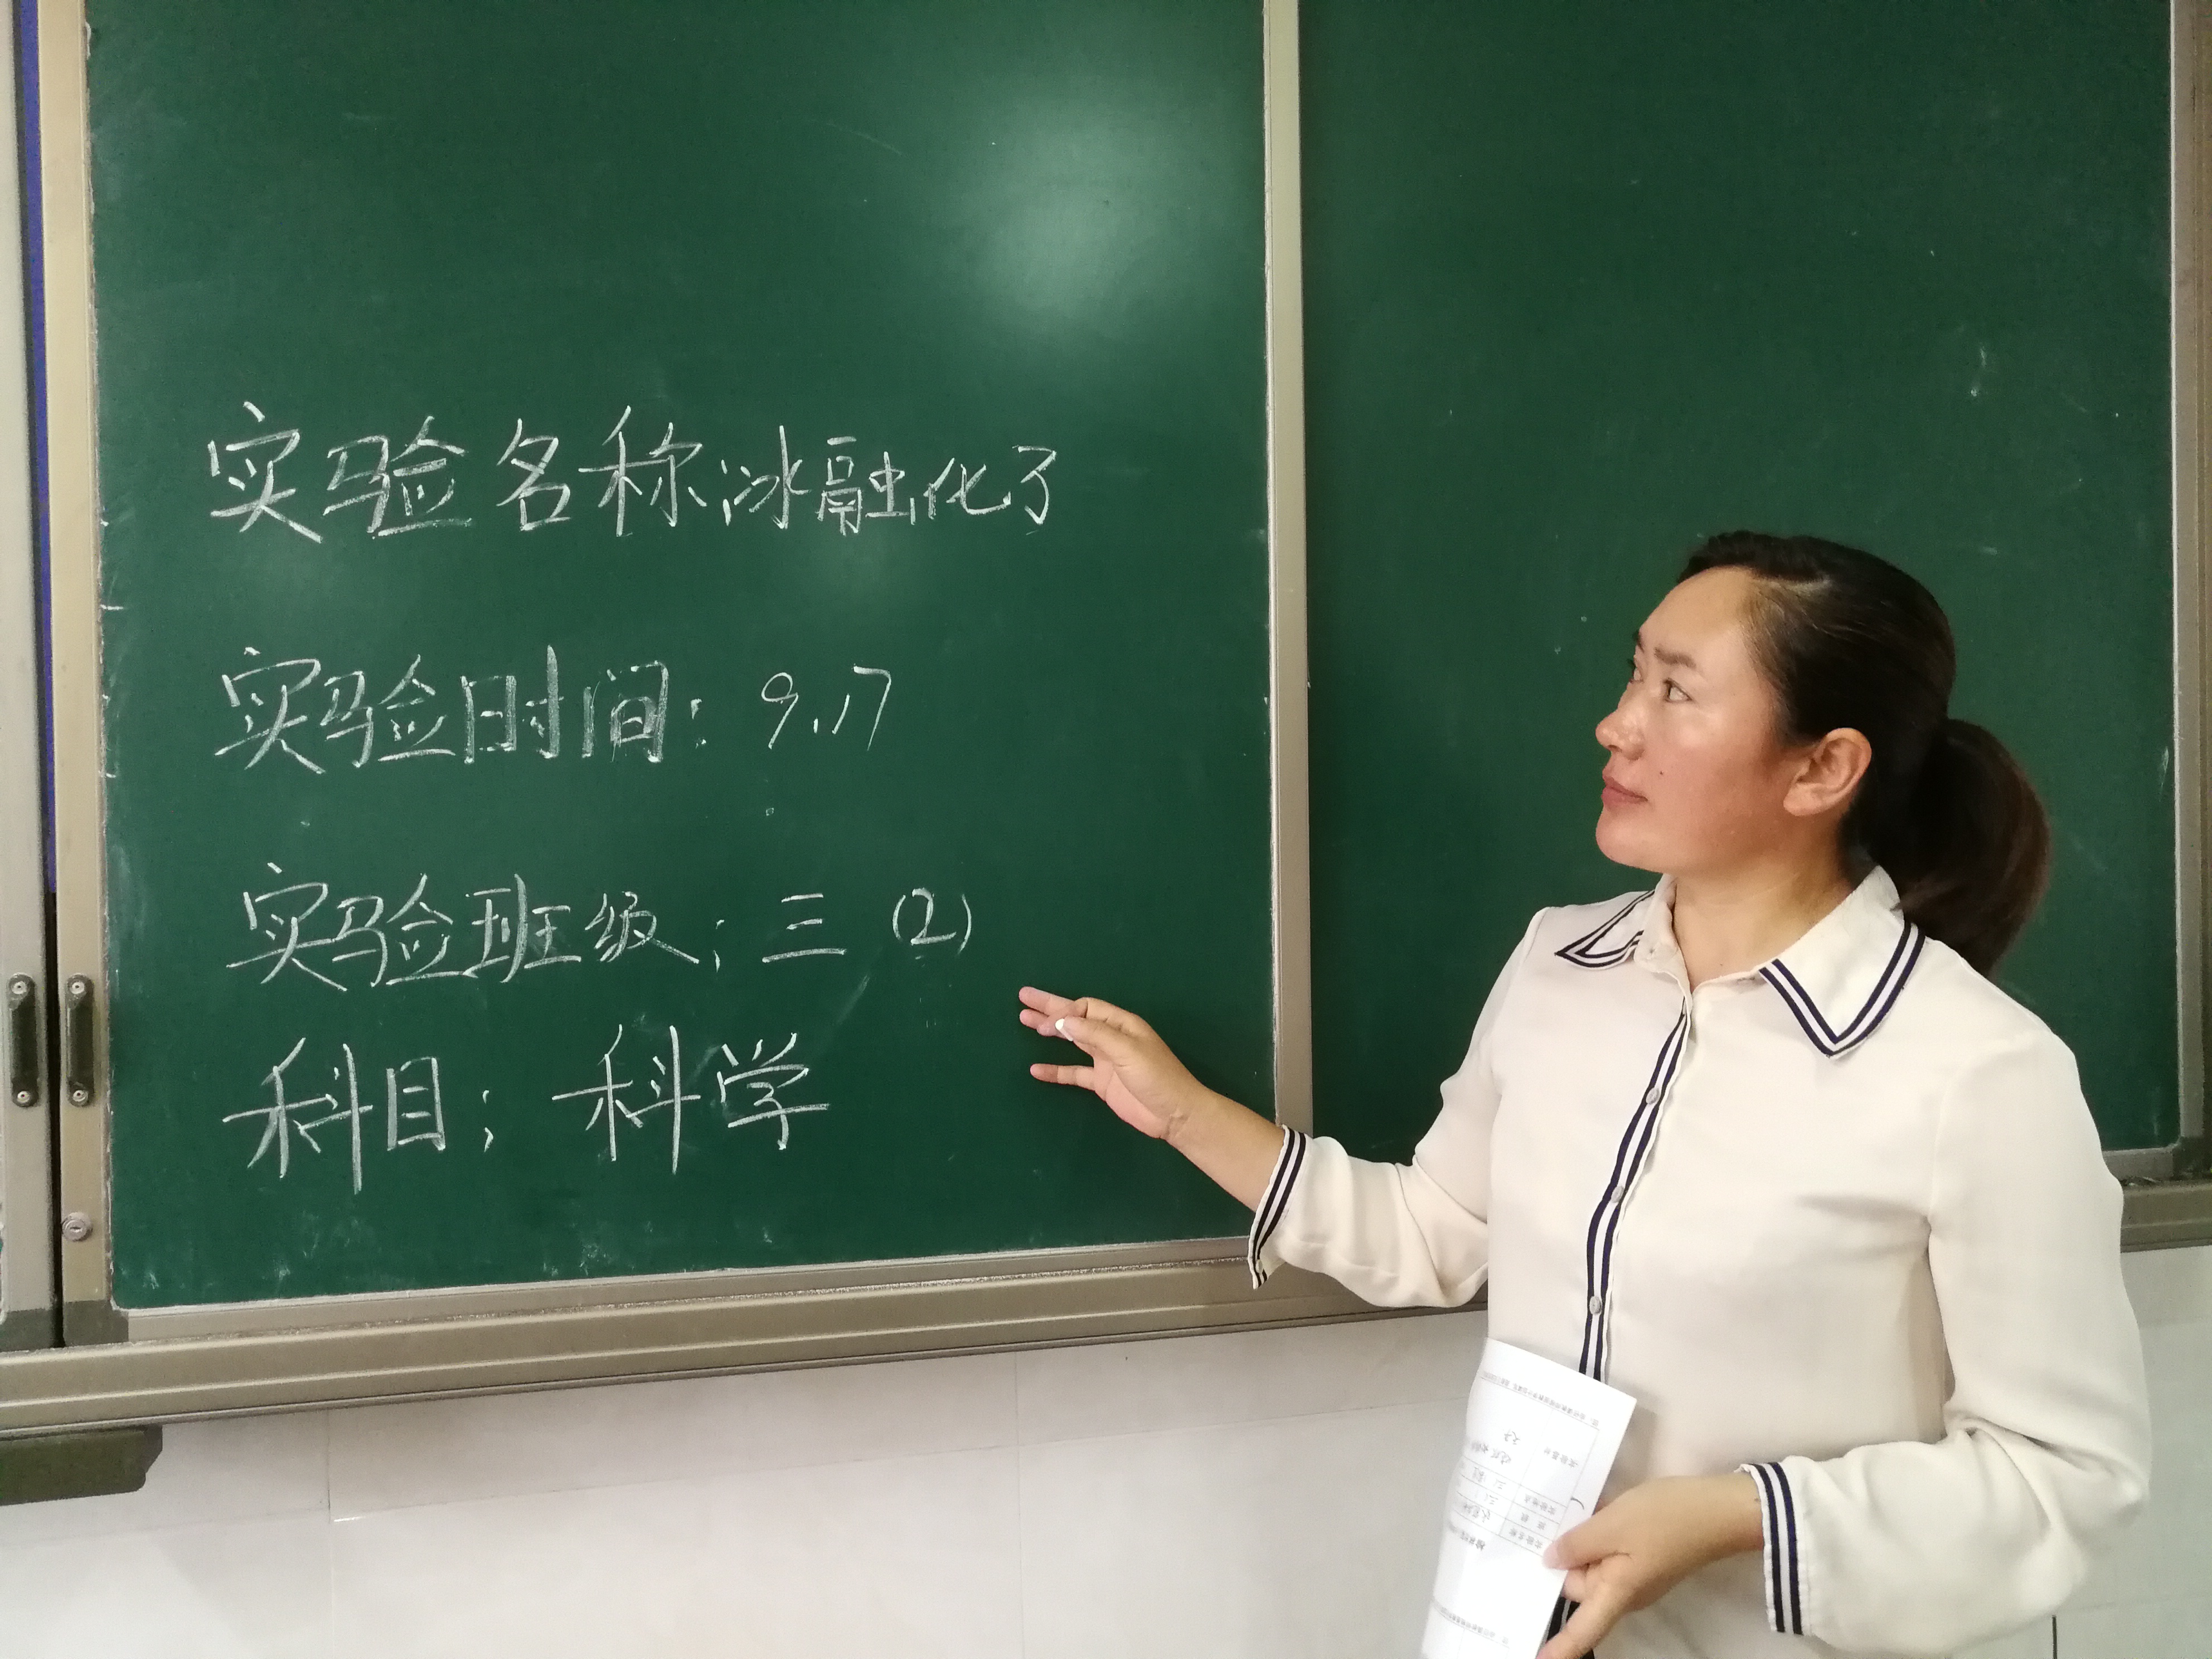 实验名称:冰融化了
实验时间: 9.17
实验班级: 三 (2)
科目: 科学